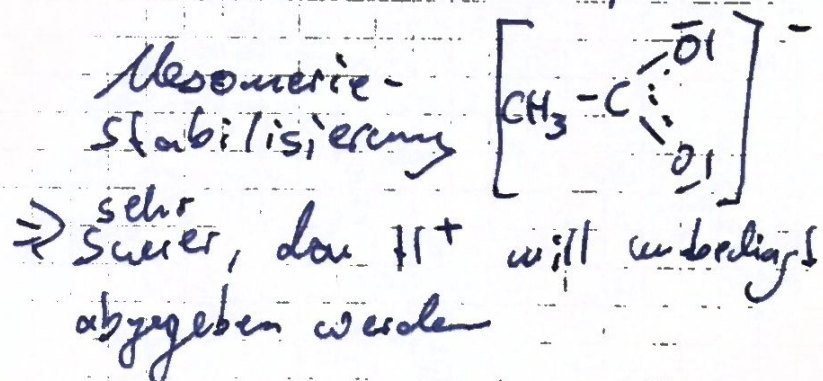 Mesomerie-
stabilisierung [CH₃-C O O]⁻
sehr
⇒ sauer, denn H⁺ will unbedingt
abgegeben werden